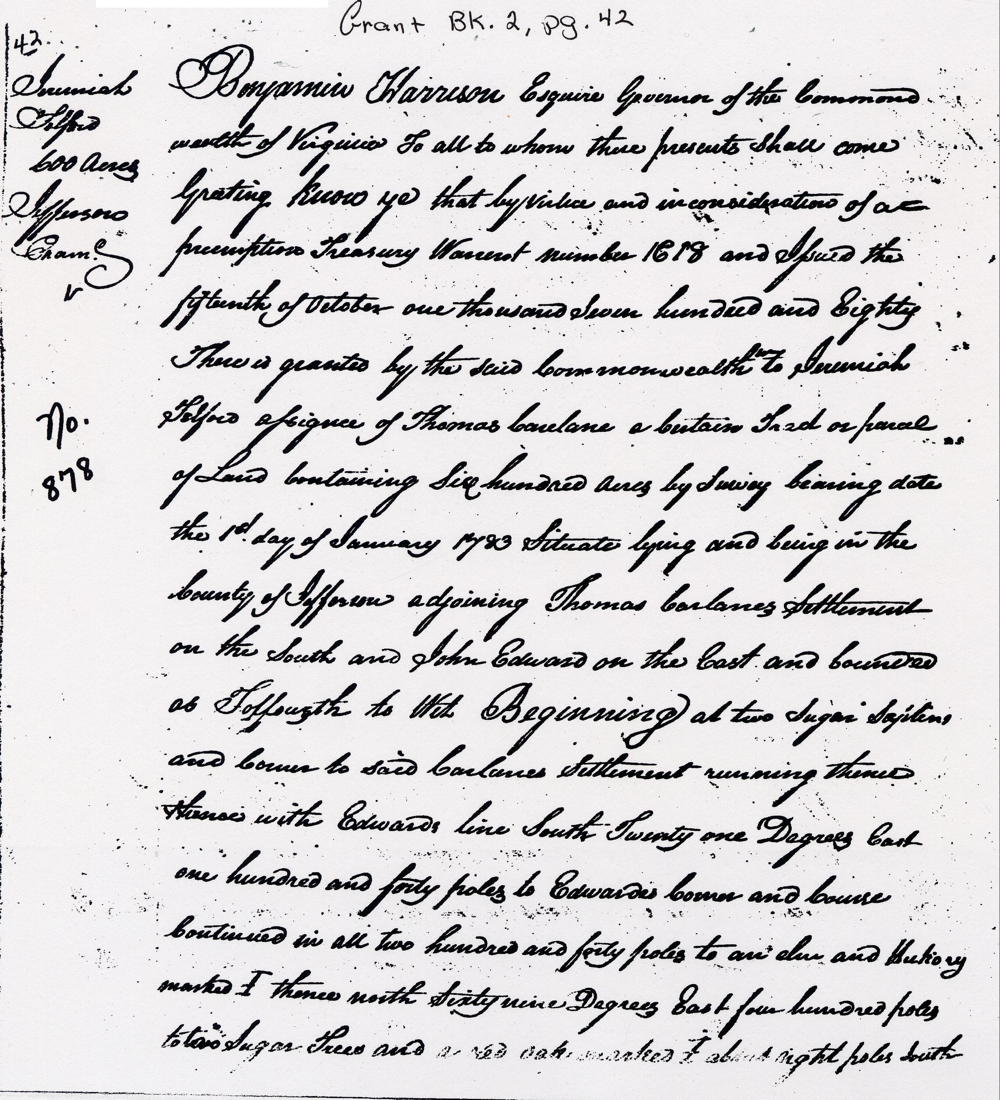 Grant BK. 2, pg. 42
42
Jeremiah
Telford
600 Acres
Jefferson
Exam.d
No.
878
Benjamin Harrison Esquire Governor of the Common
wealth of Virginia To all to whom these presents Shall come
Greting Know ye that by virtue and in consideration of a
preemption Treasury Warrent number 1678 and Issued the
fifteenth of October one thousand Seven hundred and Eighty
There is granted by the said Commonwealth to Jeremiah
Telford assignee of Thomas Carlane a Certain Tract or parcel
of Land Containing Six hundred Acres by Survey bearing date
the 1st day of January 1783 Situate lying and being in the
County of Jefferson adjoining Thomas Carlanes Settlement
on the South and John Edward on the East and bounded
as Followeth to Wit Beginning at two Sugar Saplins
and Corner to said Carlanes Settlement running thence
thence with Edwards line South Twenty one Degrees East
one hundred and forty poles to Edwardes Corner and Course
Continued in all two hundred and forty poles to an elm and Huckory
marked I thence north Sixty nine Degrees East four hundred poles
to two Sugar Trees and a red oak marked I about eight poles South